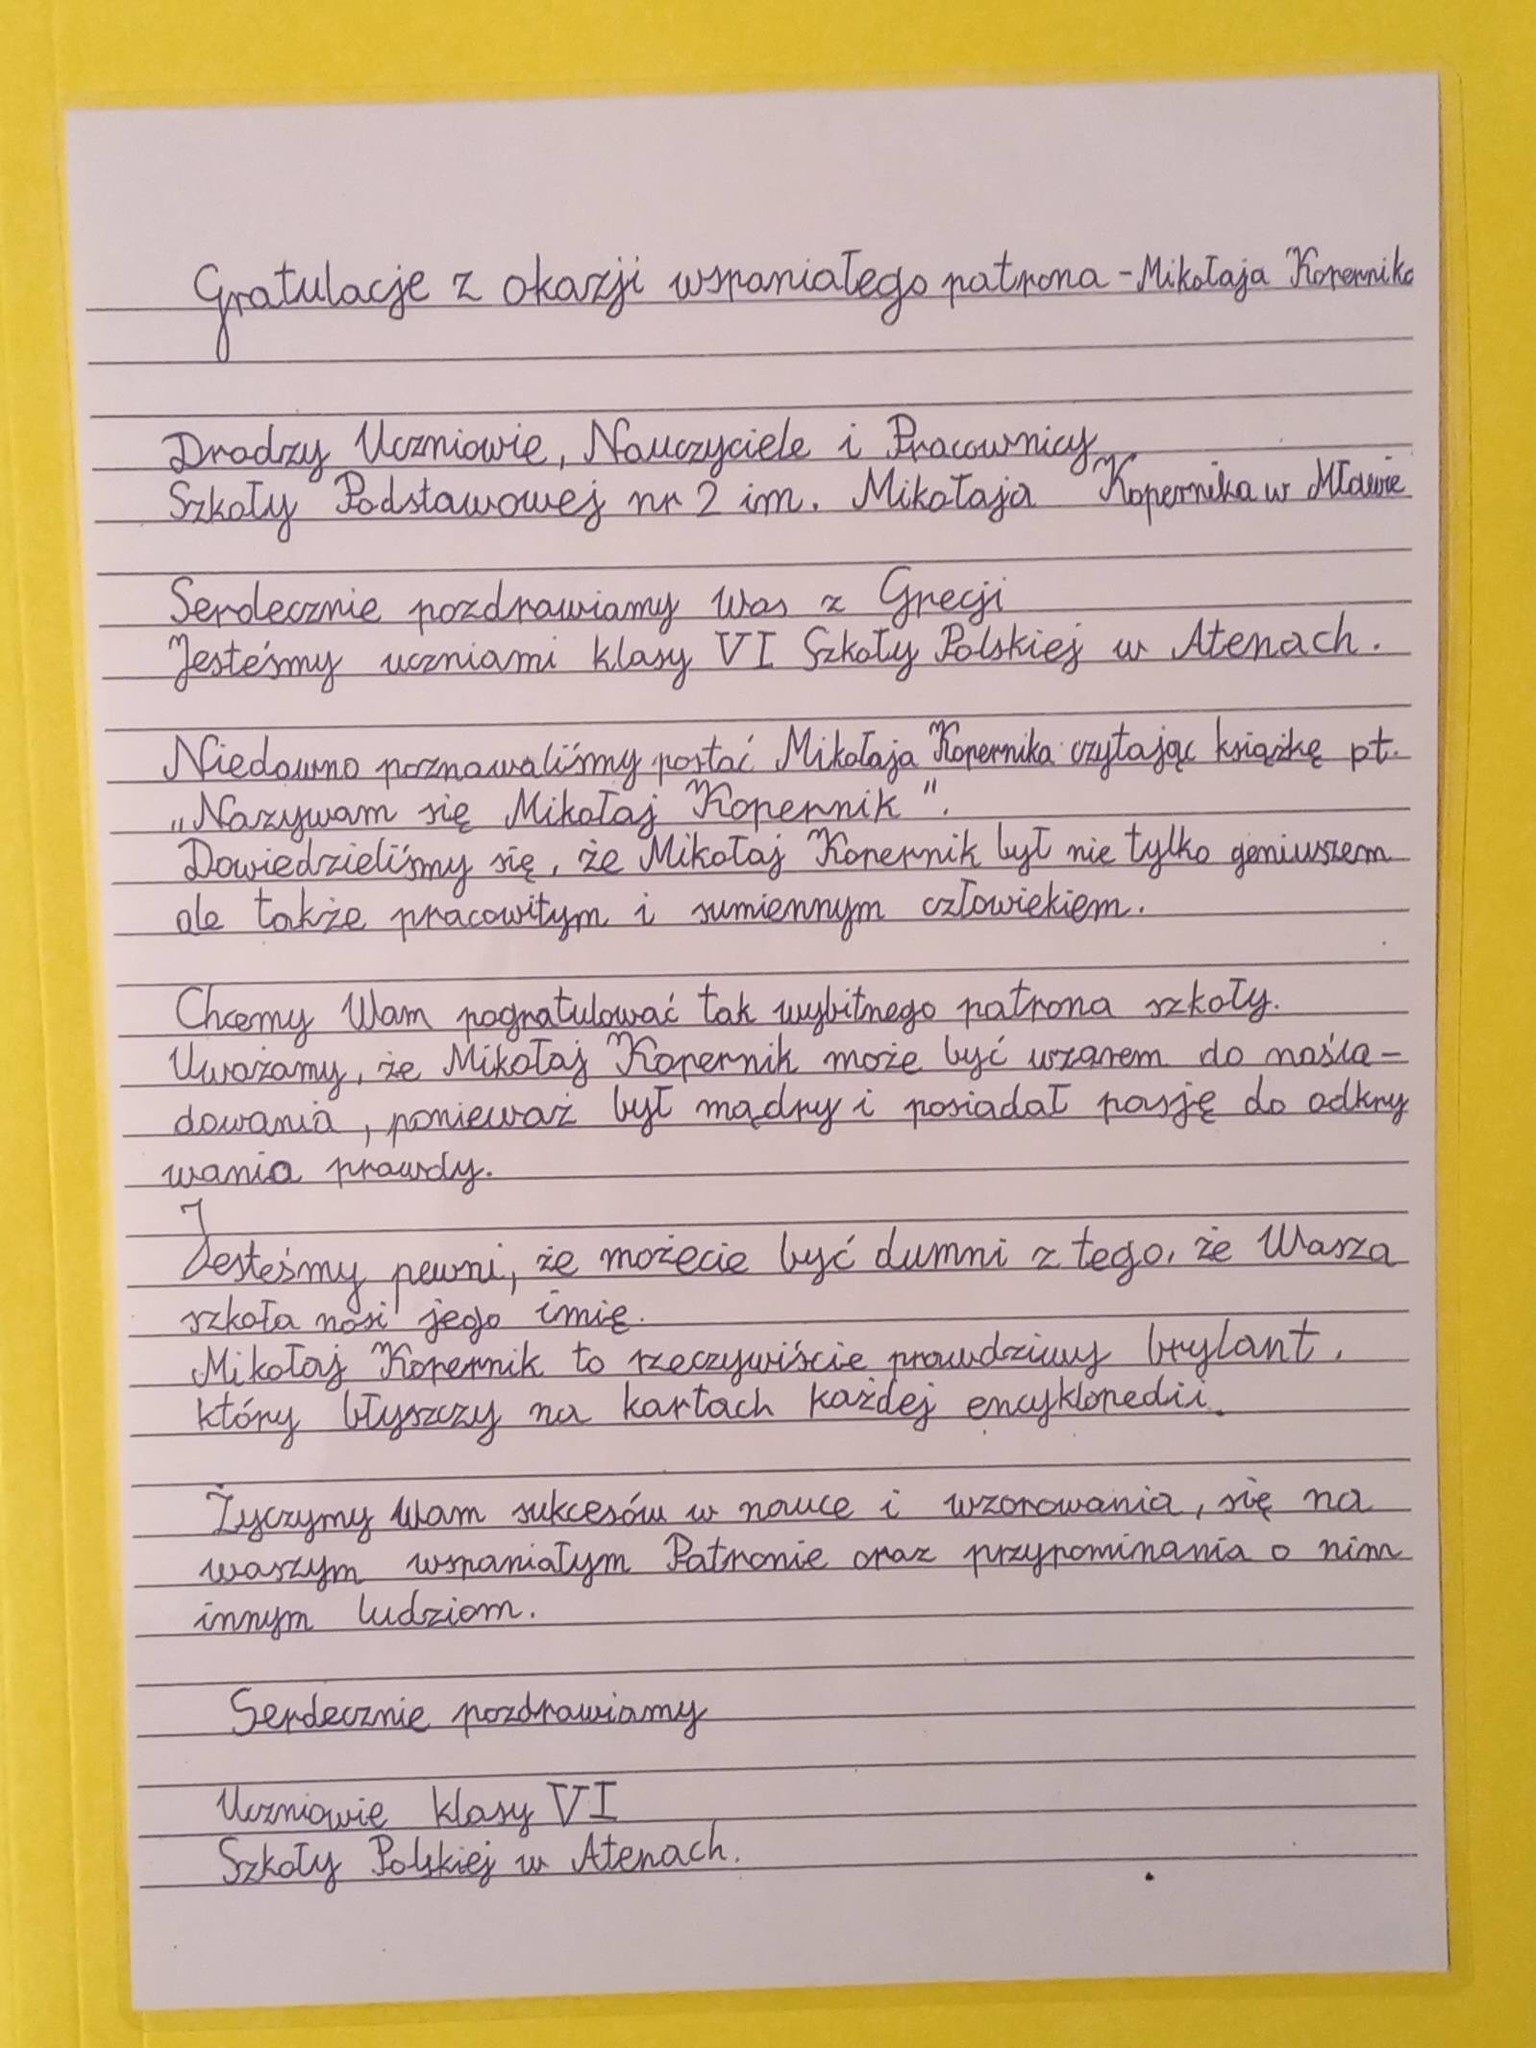 Gratulacje z okazji wspaniałego patrona - Mikołaja Kopernika
Drodzy Uczniowie, Nauczyciele i Pracownicy
Szkoły Podstawowej nr 2 im. Mikołaja Kopernika w Mławie
Serdecznie pozdrawiamy Was z Grecji
Jesteśmy uczniami klasy VI Szkoły Polskiej w Atenach.
Niedawno poznawaliśmy postać Mikołaja Kopernika czytając książkę pt.
„Nazywam się Mikołaj Kopernik".
Dowiedzieliśmy się, że Mikołaj Kopernik był nie tylko geniuszem
ale także pracowitym i sumiennym człowiekiem.
Chcemy Wam pogratulować tak wybitnego patrona szkoły.
Uważamy, że Mikołaj Kopernik może być wzorem do naśla-
dowania, ponieważ był mądry i posiadał pasję do odkry
wania prawdy.
Jesteśmy pewni, że możecie być dumni z tego, że Wasza
szkoła nosi jego imię.
Mikołaj Kopernik to rzeczywiście prawdziwy brylant,
który błyszczy na kartach każdej encyklopedii.
Życzymy Wam sukcesów w nauce i wzorowania, się na
waszym wspaniałym Patronie oraz przypominania o nim
innym ludziom.
Serdecznie pozdrawiamy
Uczniowie klasy VI
Szkoły Polskiej w Atenach.